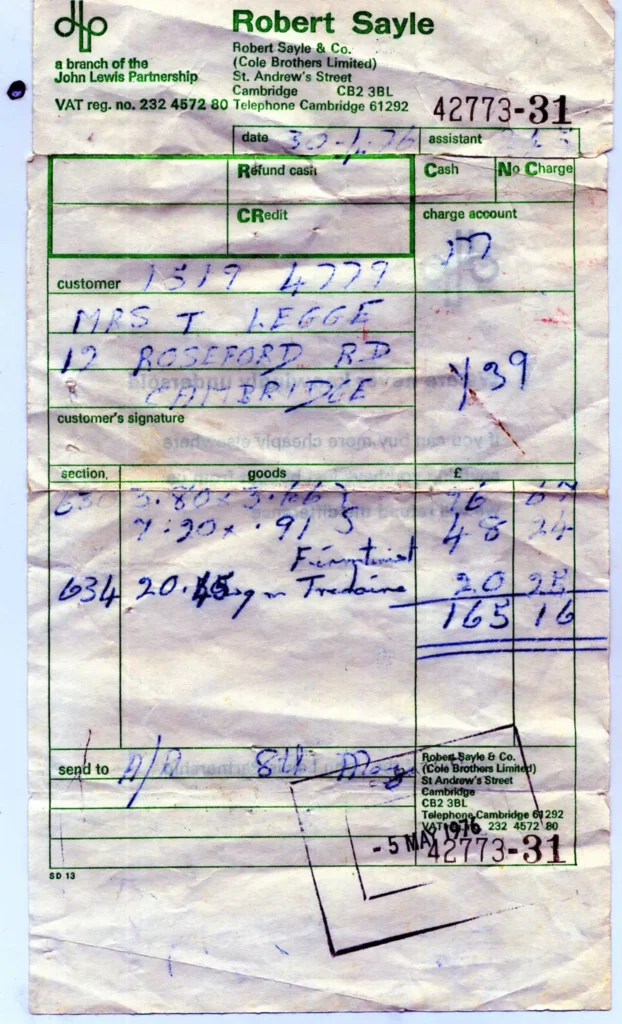 Robert Sayle
a branch of the
John Lewis Partnership
VAT reg. no. 232 4572 80
Robert Sayle & Co.
(Cole Brothers Limited)
St. Andrew's Street
Cambridge CB2 3BL
Telephone Cambridge 61292
42773-31
date 30.4.76 assistant
Refund cash
Cash No Charge
CRedit
charge account
M
customer 1519 4779
MRS T LEGGE
19 ROSEFORD RD
CAMBRIDGE
customer's signature
139
section. goods £
631 3.80 x 3.66 96 67
7.20 x .91 48 24
Firmtwist
634 20. 20 25
165 16
send to A/A 8th May
Robert Sayle & Co.
(Cole Brothers Limited)
St Andrew's Street
Cambridge
CB2 3BL
Telephone Cambridge 61292
VAT 232 4572 80
- 5 MAY 1976
42773-31
SD 13